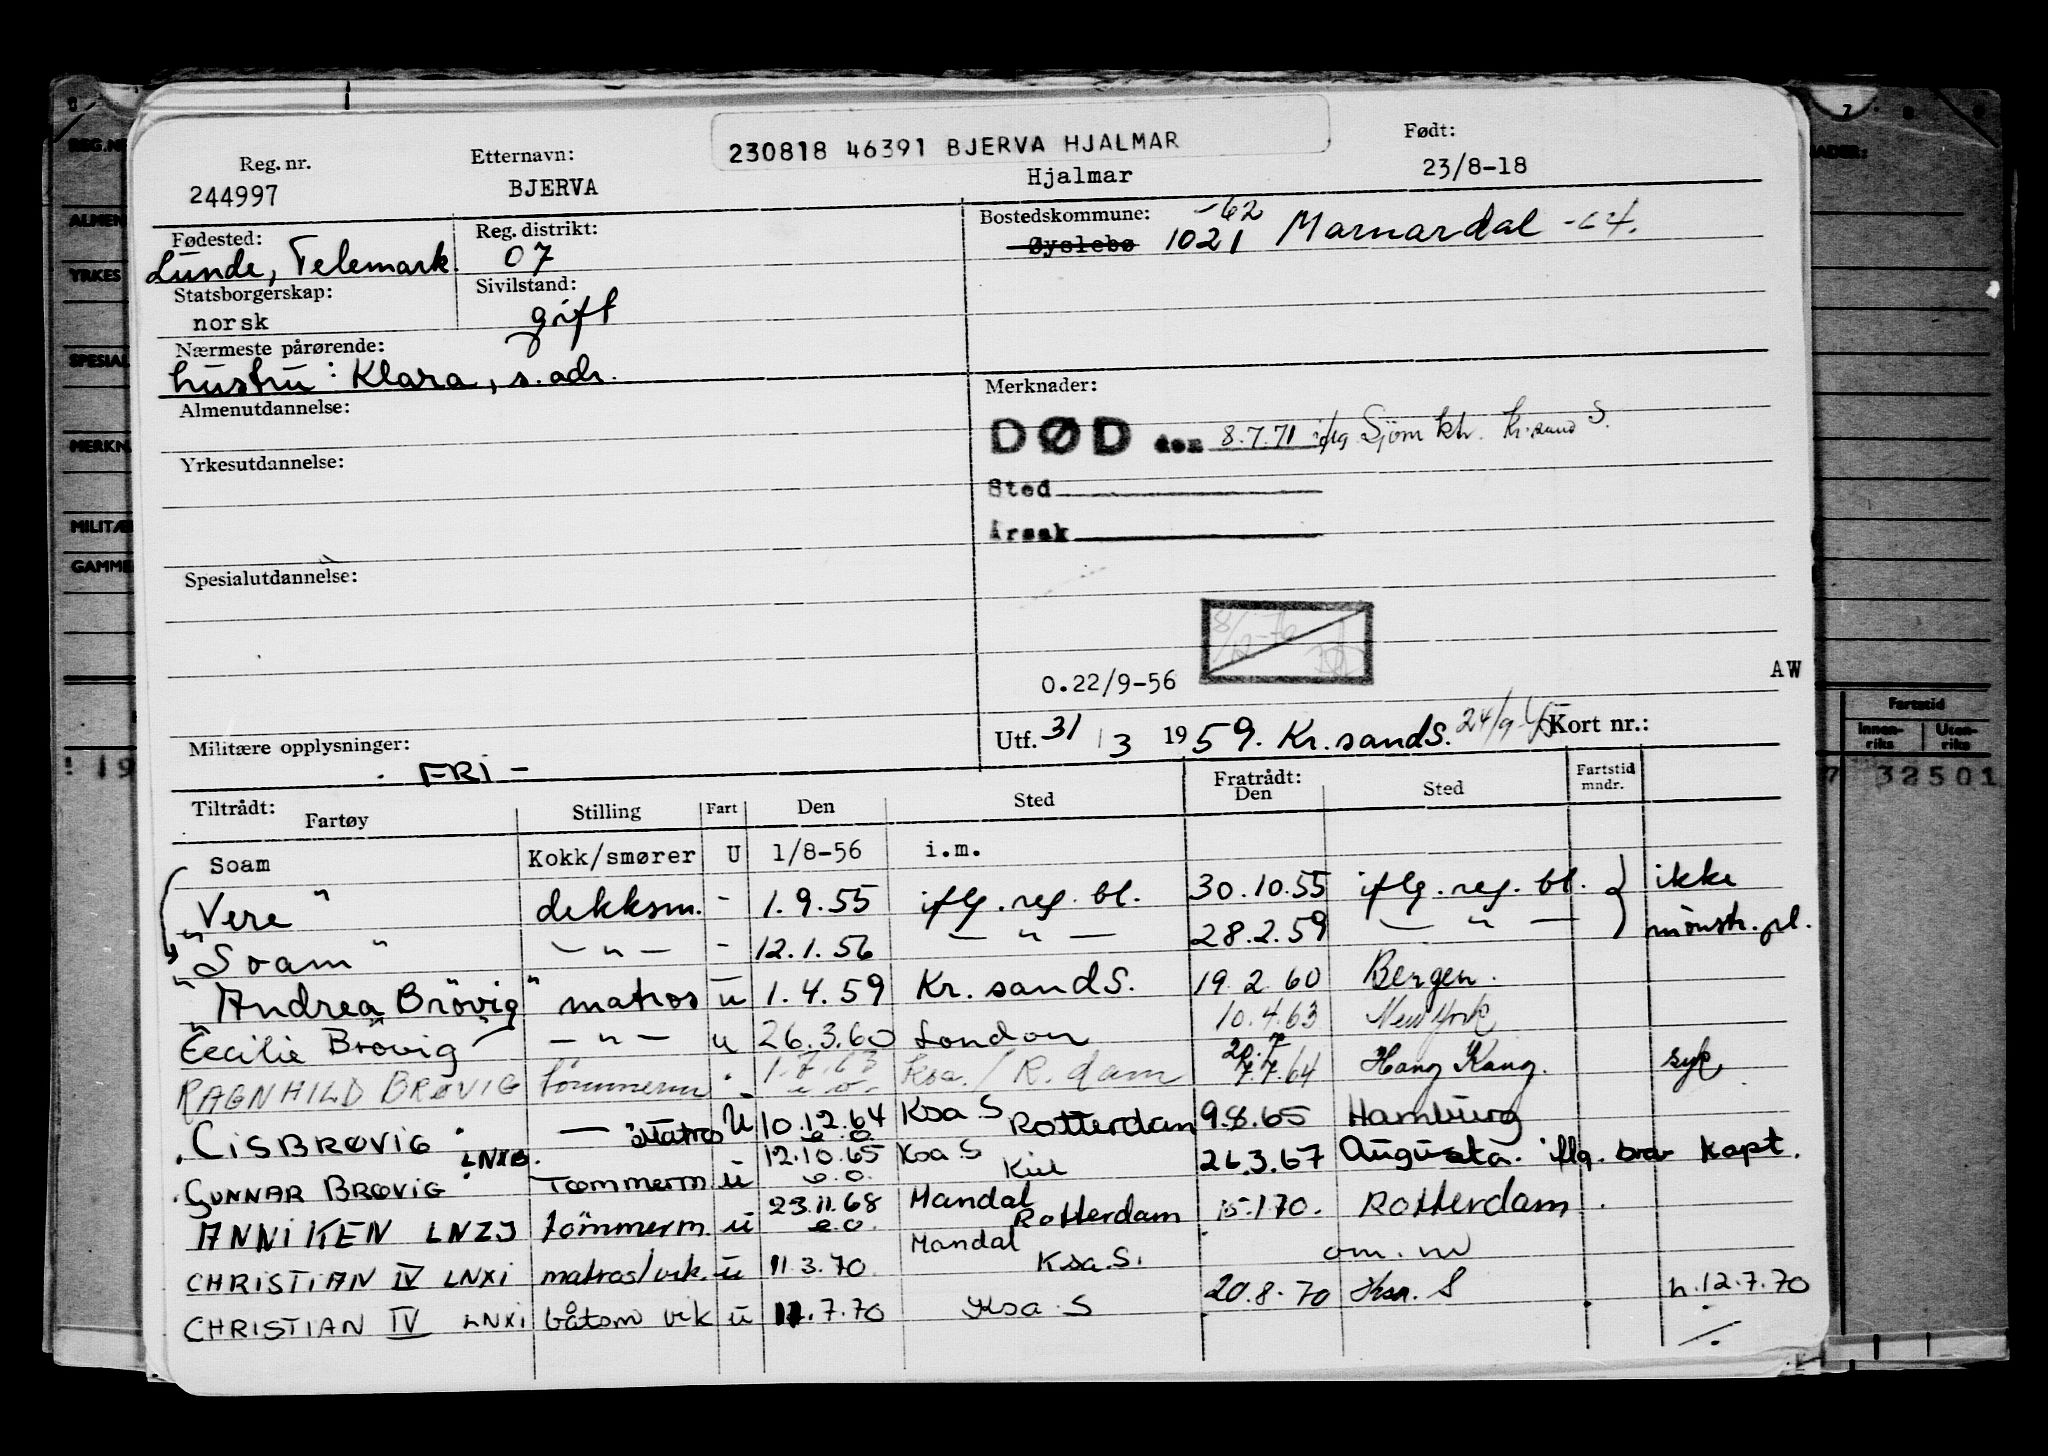 230818 46391 BJERVA HJALMAR
Reg. nr. Etternavn: Født:
244997 BJERVA Hjalmar 23/8-18
Fødested: Reg. distrikt: Bostedskommune: -62
Lunde, Telemark. 07 Øyslebø 1021 Marnardal -64.
Statsborgerskap: Sivilstand:
norsk gift
Nærmeste pårørende:
hustru: Klara, s. adr.
Almenutdannelse: Merknader:
DØD den 8.7.71 iflg Sjöm ktr. Kr.sand S.
Yrkesutdannelse:
Sted
Årsak
Spesialutdannelse:
0.22/9-56 AW
Militære opplysninger: Utf. 31/3 1959. Kr.sand S. Kort nr.:
- FRI -
Tiltrådt: Fratrådt:
Fartøy Stilling Fart Den Sted Den Sted Fartstid mndr.
Soam Kokk/smører U 1/8-56 i.m.
"Vere" dekksm. - 1.9.55 iflg. reg. bl. 30.10.55 iflg. reg. bl. } ikke
"Soam" — " — - 12.1.56 — " — 28.2.59 — " — mönstr. pl.
"Andrea Brövig" matros u 1.4.59 Kr.sand S. 19.2.60 Bergen.
"Cecilie Brøvig" — " — u 26.3.60 London 10.4.63 New York
RAGNHILD BRØVIG tömmerm Ksa. / R.dam 7.7.64 Hong Kong. syk
CISBRØVIG — " — Matros U 10.12.64 e.o. Ksa S Rotterdam 9.8.65 Hamburg
GUNNAR BRØVIG Tømmerm u 12.10.65 e.o. Ksa S Kiel 26.3.67 Augusta. iflg. brev Kapt.
ANNIKEN LNZJ tömmerm. u 23.11.68 e.o. Mandal Rotterdam 15.1.70. Rotterdam
CHRISTIAN IV LNXI matros/vik. u 11.3.70. Mandal Ksa.S. om. m
CHRISTIAN IV LNXI båtsm vik u 11.7.70 Ksa. S 20.8.70 Ksa. S h. 12.7.70
REG.NR
ALMEN
YRKES
SPESIAL
MERKN
MILITÆ
GAMME
Fartstid
Innenriks Utenriks
! 19
7 32501